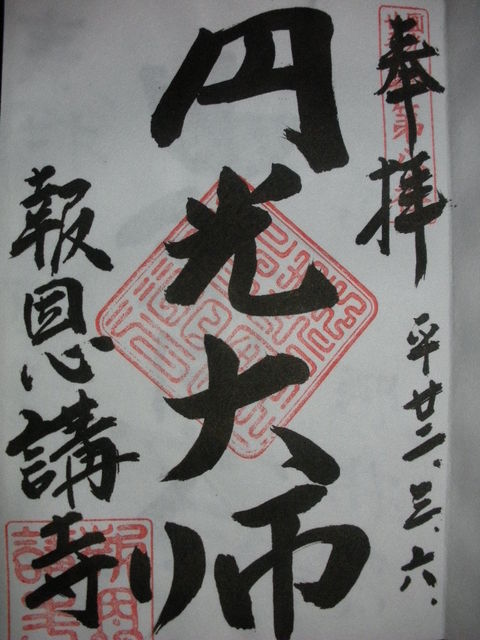 奉拝
平廿二、三、六、
円光大师
報恩講寺